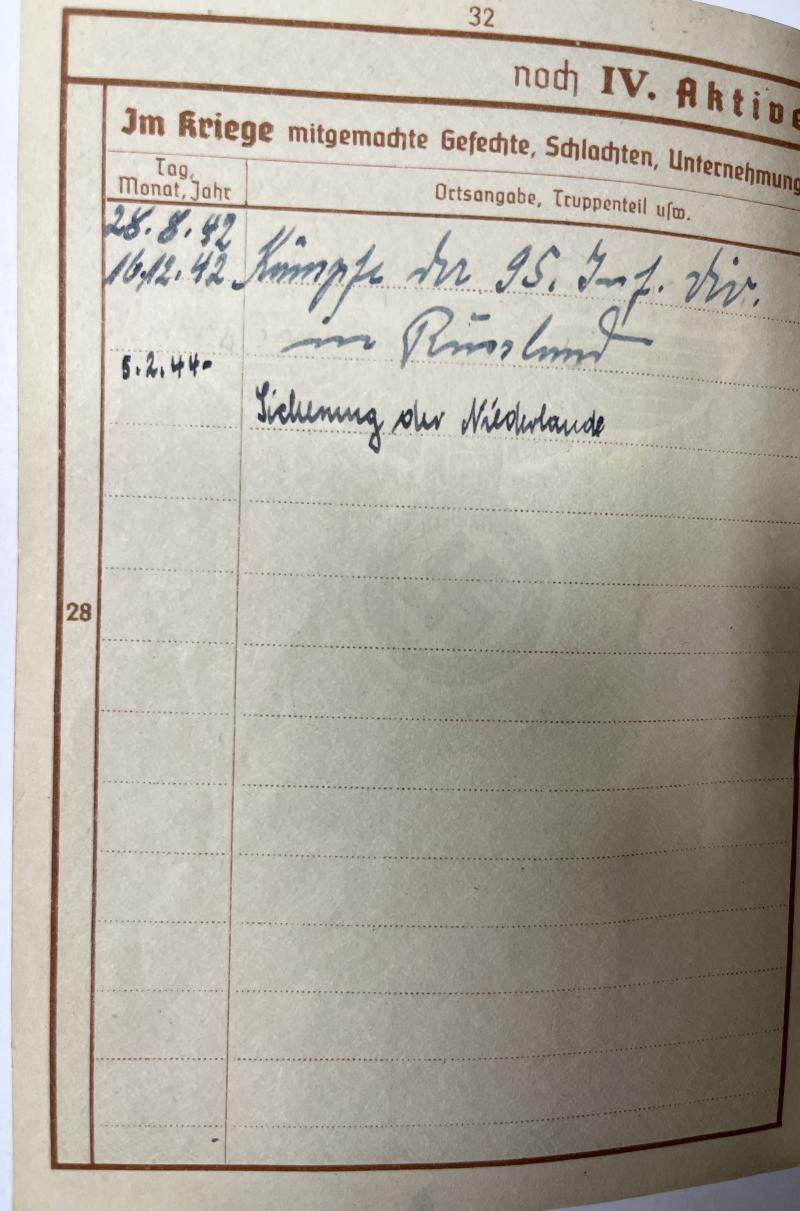 32
noch IV. Aktive
Im Kriege mitgemachte Gefechte, Schlachten, Unternehmung
Tag, Monat, Jahr
Ortsangabe, Truppenteil usw.
28.8.42
16.12.42 Kämpfe der 95. Inf. Div.
in Russland
5.2.44-
Sicherung der Niederlande
28